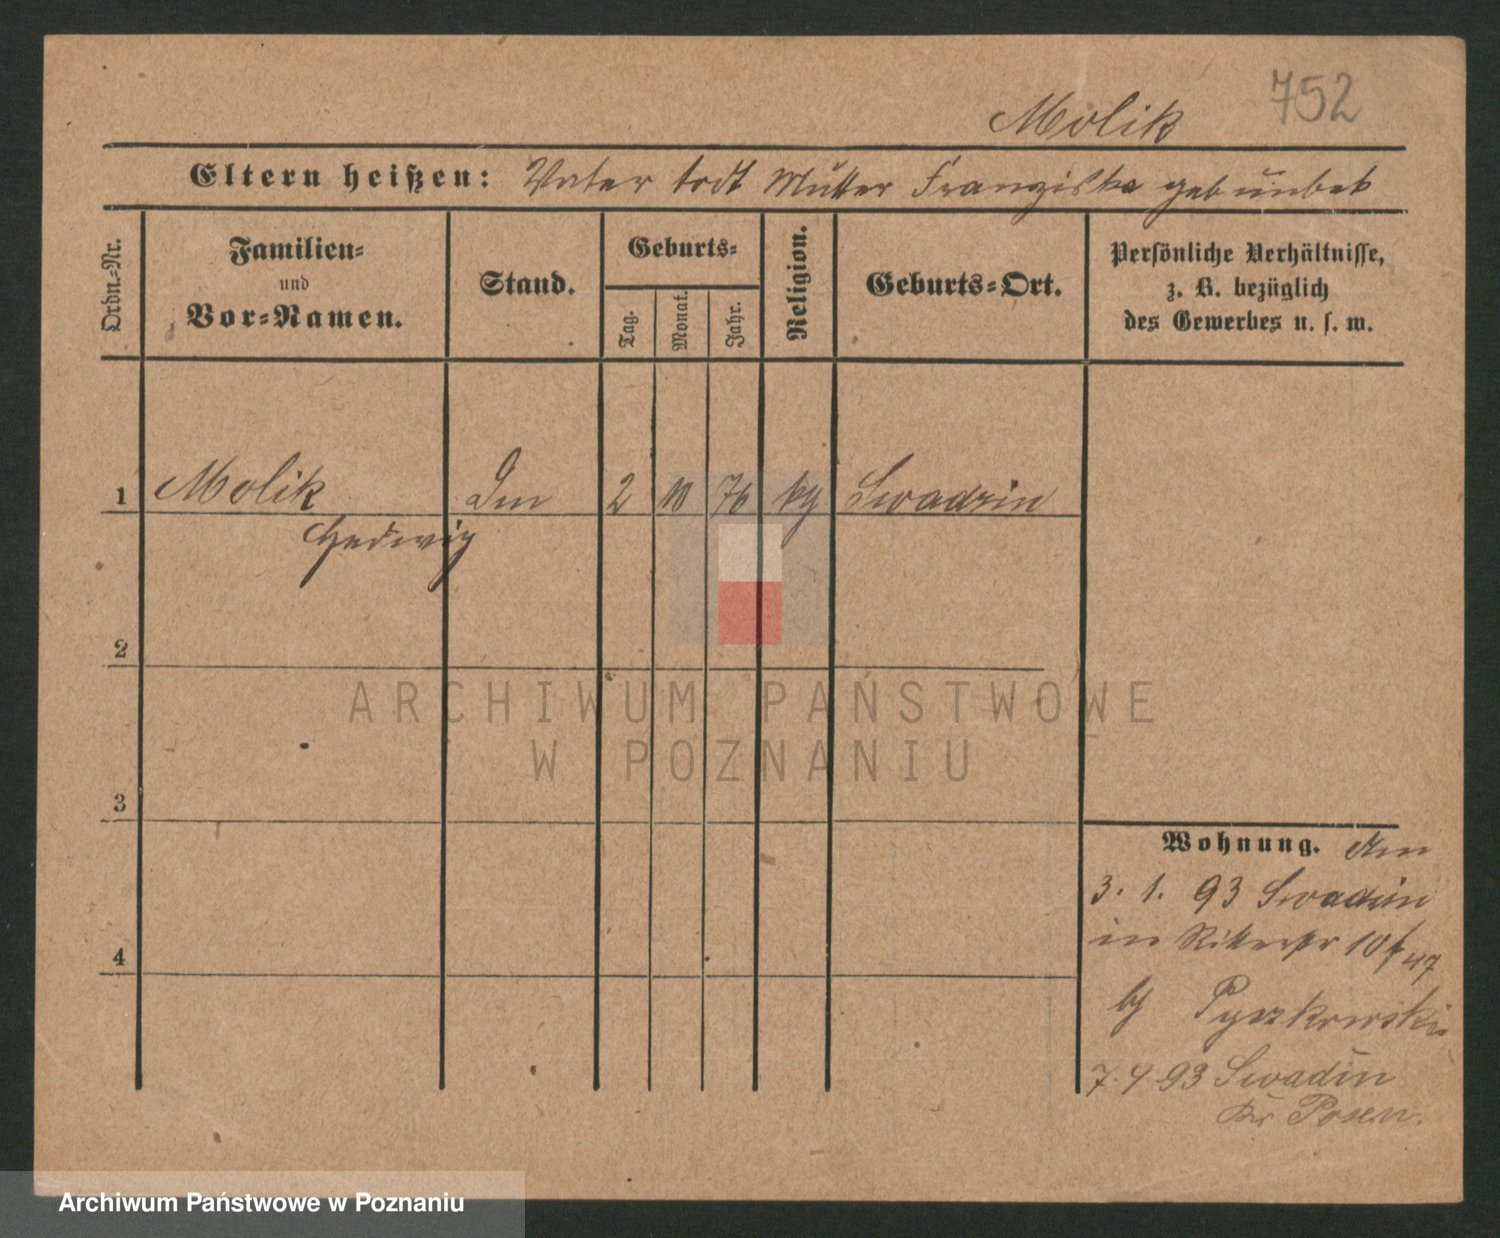 Molik 752
Eltern heißen: Vater todt Mutter Franziska geb unbek
Ordn.-Nr.
Familien-
und
Vor-Namen.
Stand.
Geburts-
Tag.
Monat.
Jahr.
Religion.
Geburts-Ort.
Persönliche Verhältnisse,
z. B. bezüglich
des Gewerbes u. s. w.
1 Molik 2 10 76 Swadzin
Hedwig
2
3
4
Wohnung. Am
3. 1. 93 Swadzin
in Ritterstr 10
Pyszkowski
7.4.93 Swadzin
Kr Posen.
ARCHIWUM PAŃSTWOWE
W POZNANIU
Archiwum Państwowe w Poznaniu